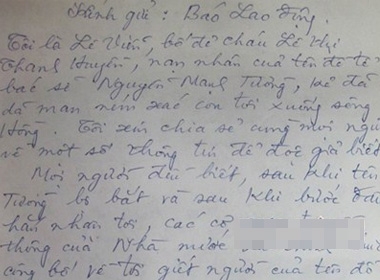 Kính gửi : Báo Lao động.
Tôi là Lê Viễn, bố đẻ cháu Lê Thị
Thanh Huyền, nạn nhân của tên đồ tể
bác sĩ Nguyễn Mạnh Tường, kẻ đã
dã man ném xác con tôi xuống sông
Hồng. Tôi xin chia sẻ cùng mọi người
về một số thông tin để độc giả biết
Mọi người đều biết, sau khi tên
Tường bị bắt và sau khi bước đầu
hắn nhận tội, các cơ
thống của Nhà nước
công bố về tội giết người của tên đồ